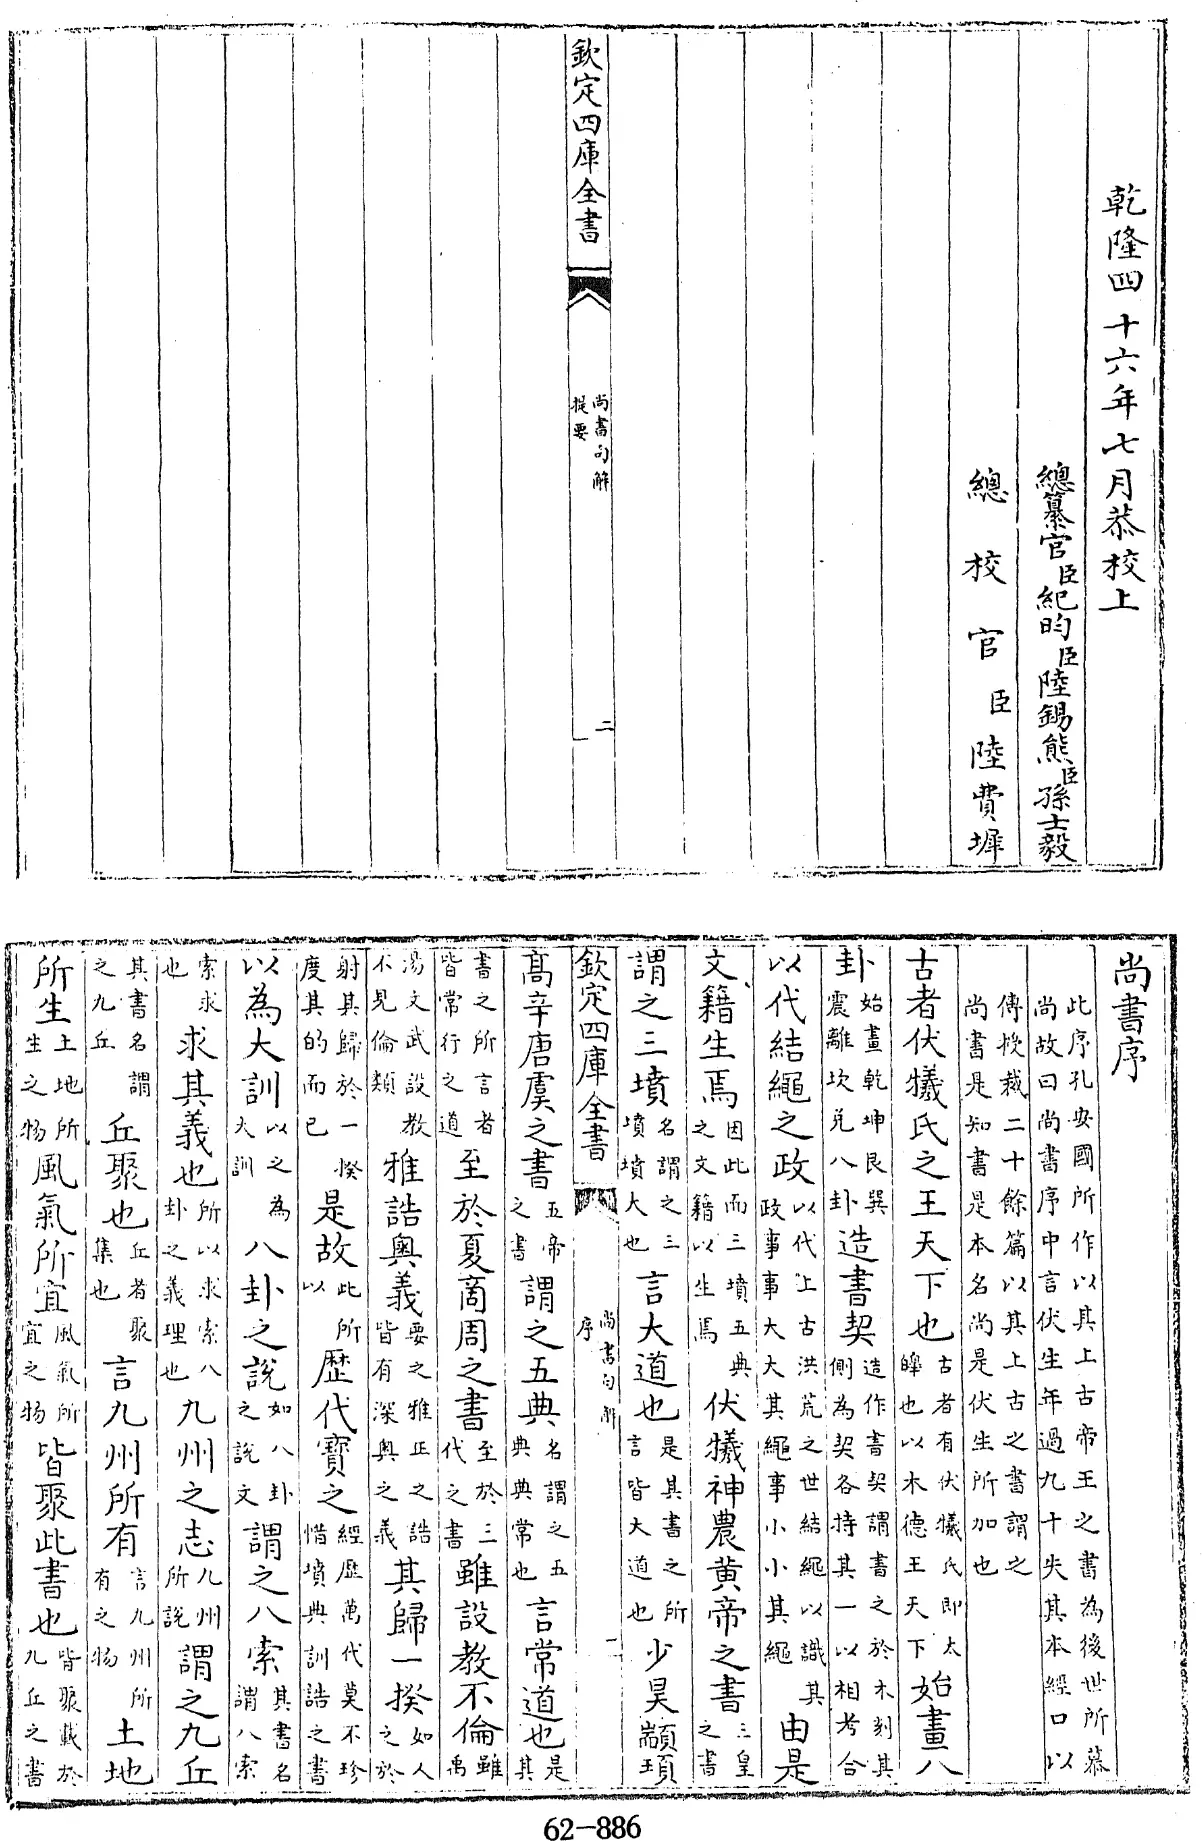 乾隆四十六年七月恭校上
總纂官臣紀昀臣陸錫熊臣孫士毅
總校官臣陸費墀
欽定四庫全書
尚書句解
提要
二
尚書序
此序孔安國所作以其上古帝王之書為後世所慕
尚故曰尚書序中言伏生年過九十失其本經口以
傳授裁二十餘篇以其上古之書謂之
尚書是知書是本名尚是伏生所加也
古者伏犧氏之王天下也古者有伏犧氏即太皥也以木德王天下始畫八
卦始畫乾坤艮巽震離坎兑八卦造書契造作書契謂書之於木刻其側為契各持其一以相考合
以代結繩之政以代上古洪荒之世結繩以識其政事事大大其繩事小小其繩由是
文籍生焉因此而三墳五典之文籍以生焉伏犧神農黄帝之書三皇之書
謂之三墳名謂之三墳墳大也言大道也是其書之所言皆大道也少昊顓頊
欽定四庫全書
尚書句解
序
一
高辛唐虞之書五帝之書謂之五典名謂之五典典常也言常道也是其
書之所言者皆常行之道至於夏商周之書至於三代之書雖設教不倫雖禹
湯文武設教不見倫類雅誥奥義要之雅正之誥皆有深奥之義其歸一揆如人之於
射其歸於一揆度其的而已是故此所以歴代寶之經歴萬代莫不珍惜墳典訓誥之書
以為大訓以之為大訓八卦之説如八卦之說文謂之八索其書名謂八索
索求也求其義也所以求索八卦之義理也九州之志九州所説謂之九丘
其書名謂之九丘丘聚也丘者聚集也言九州所有言九州所有之物土地
所生土地所生之物風氣所宜風氣所宜之物皆聚此書也皆聚載於九丘之書
62-886